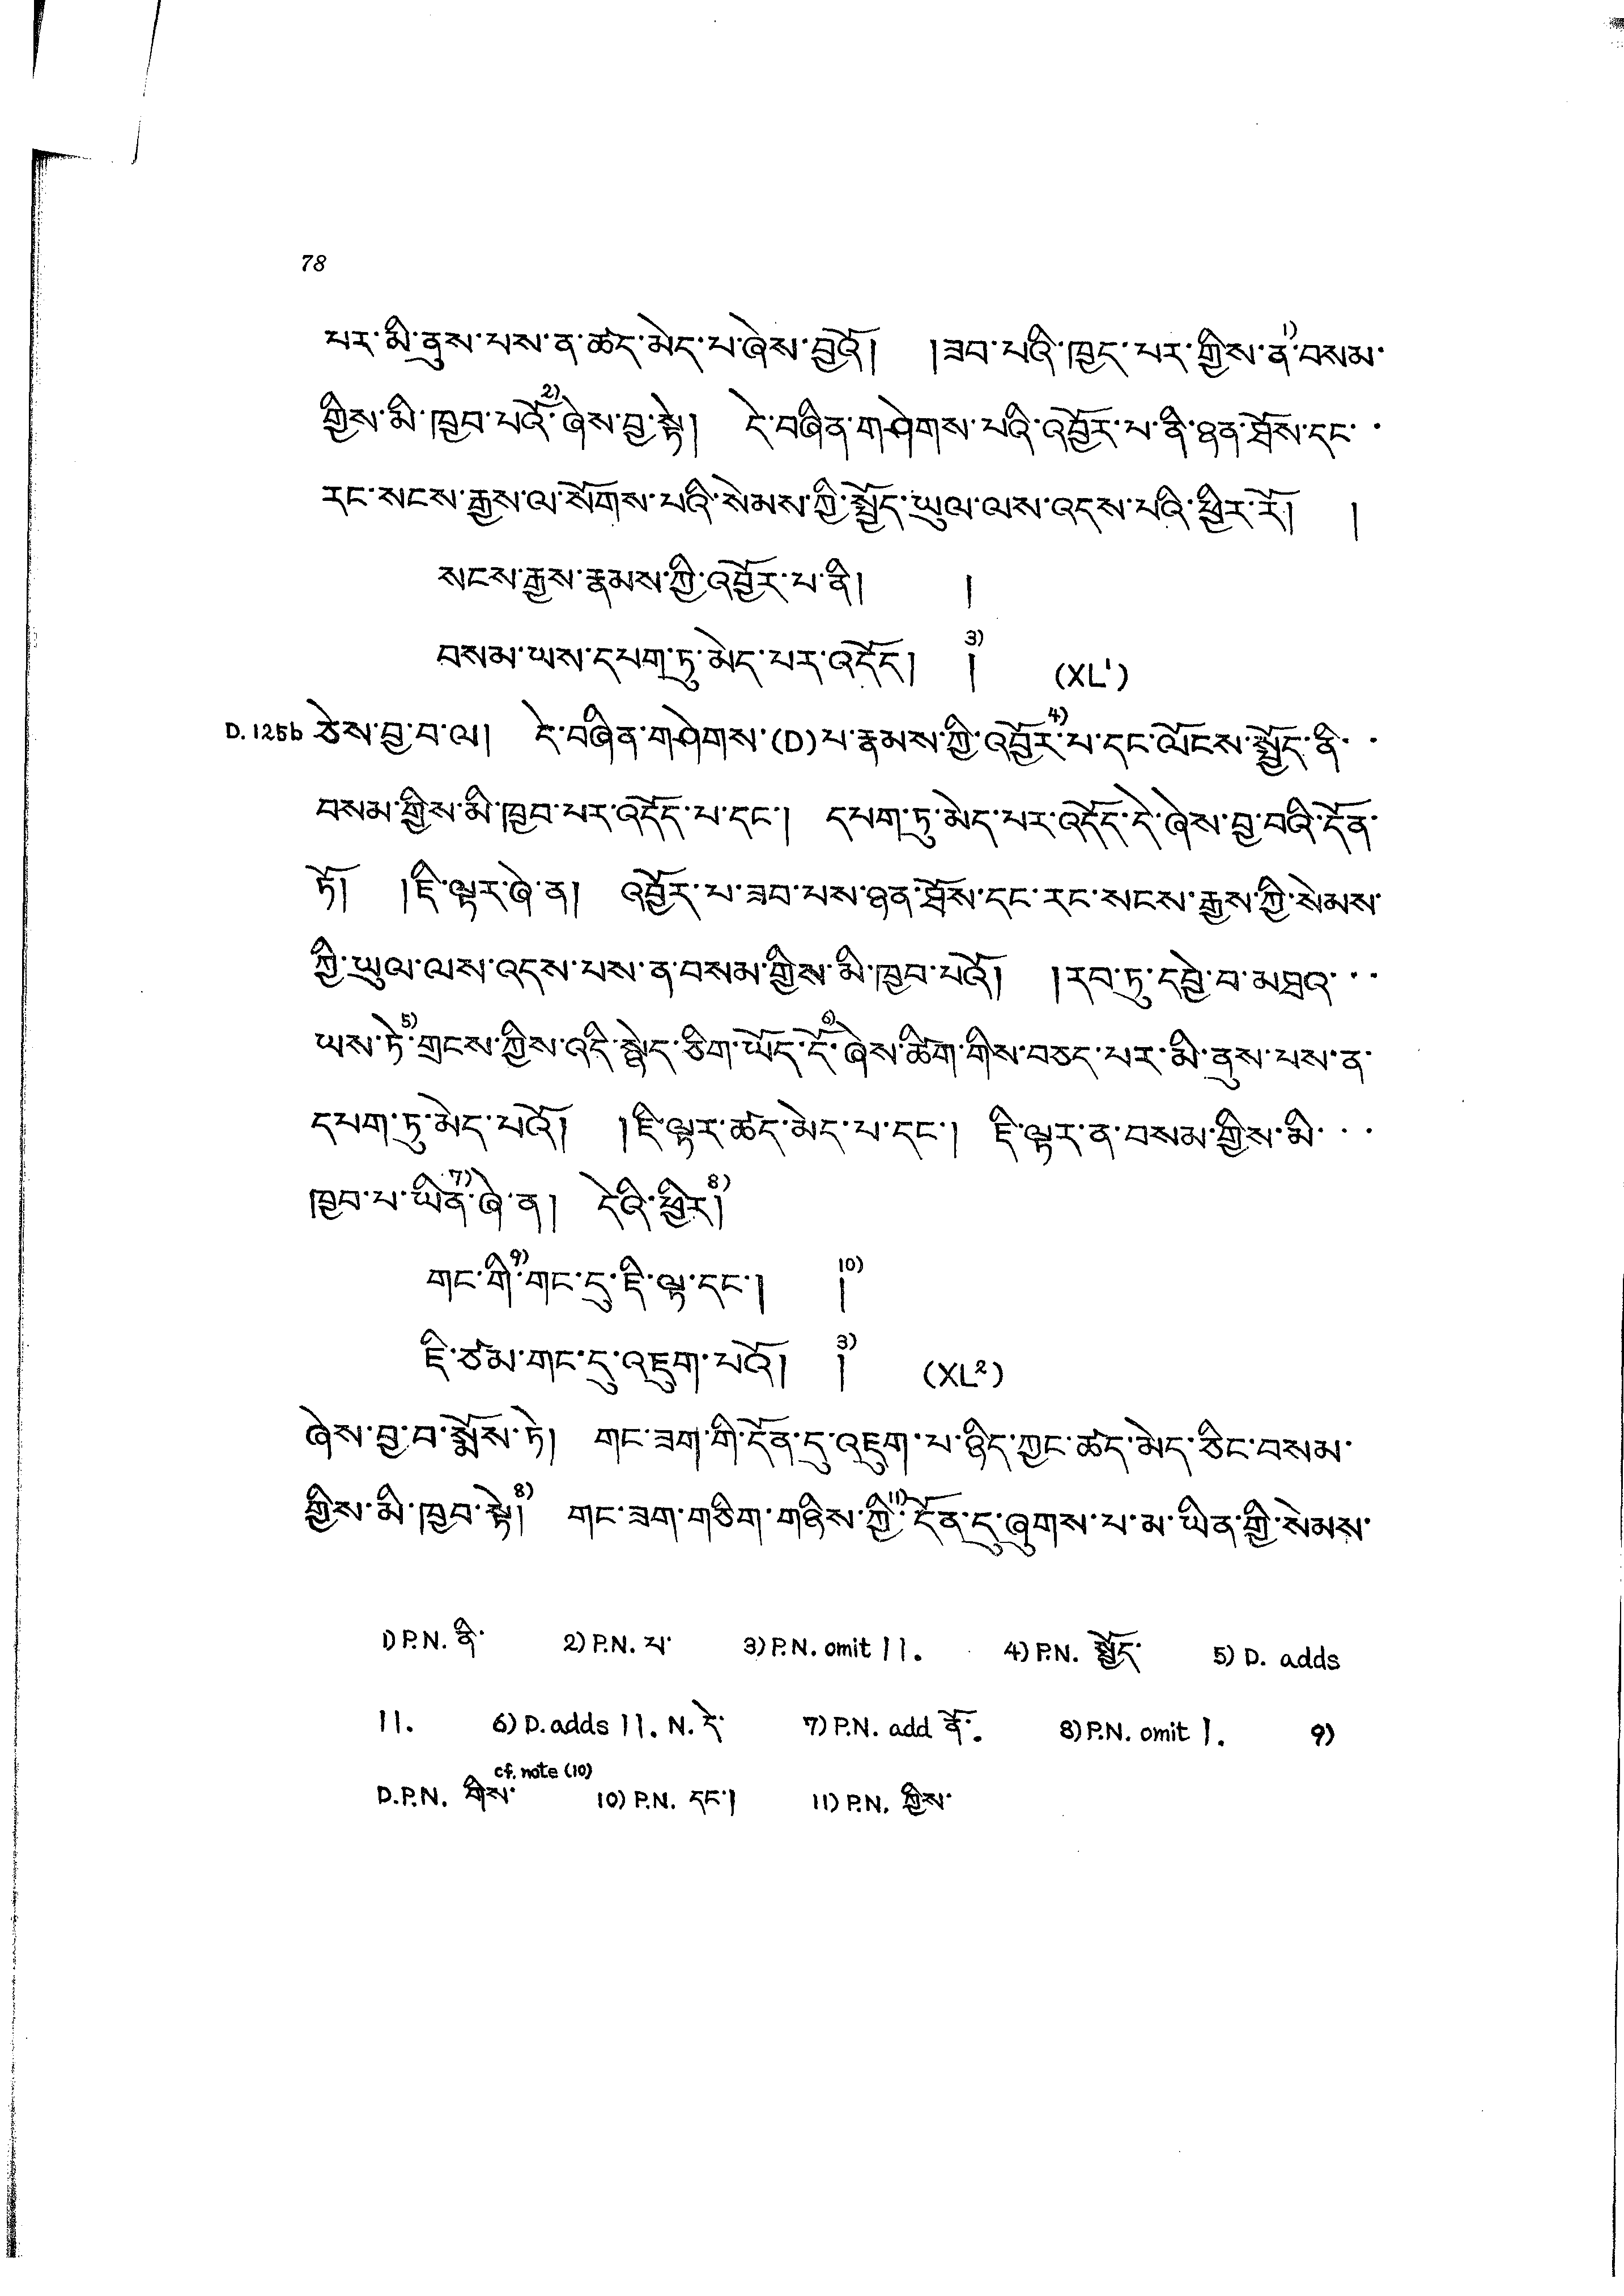 78
པར་མི་ནུས་པས་ན་ཚད་མེད་པ་ཞེས་བྱའོ། །ཟབ་པའི་ཁྱད་པར་གྱིས་ན་1)བསམ་
གྱིས་མི་ཁྱབ་པའོ་2)ཞེས་བྱ་སྟེ། དེ་བཞིན་གཤེགས་པའི་འབྱོར་པ་ནི་ཉན་ཐོས་དང་་
རང་སངས་རྒྱས་ལ་སོགས་པའི་སེམས་ཀྱི་སྤྱོད་ཡུལ་ལས་འདས་པའི་ཕྱིར་རོ། །
སངས་རྒྱས་རྣམས་ཀྱི་འབྱོར་པ་ནི། །
བསམ་ཡས་དཔག་ཏུ་མེད་པར་འདོད། །3) (XL¹)
D. 125b ཅེས་བྱ་བ་ལ། དེ་བཞིན་གཤེགས་(D)པ་རྣམས་ཀྱི་འབྱོར་4)པ་དང་ལོངས་སྤྱོད་ནི་་་
བསམ་གྱིས་མི་ཁྱབ་པར་འདོད་པ་དང་། དཔག་ཏུ་མེད་པར་འདོད་དེ་ཞེས་བྱ་བའི་དོན་
ཏོ། །ཇི་ལྟར་ཞེ་ན། འབྱོར་པ་ཟབ་པས་ཉན་ཐོས་དང་རང་སངས་རྒྱས་ཀྱི་སེམས་
ཀྱི་ཡུལ་ལས་འདས་པས་ན་བསམ་གྱིས་མི་ཁྱབ་པའོ། །རབ་ཏུ་དབྱེ་བ་མཐའ་་་
ཡས་ཏེ་5)གྲངས་ཀྱིས་འདི་སྙེད་ཅིག་ཡོད་དོ་6)ཞེས་ཚིག་གིས་བཅད་པར་མི་ནུས་པས་ན་
དཔག་ཏུ་མེད་པའོ། །ཇི་ལྟར་ཚད་མེད་པ་དང་། ཇི་ལྟར་ན་བསམ་གྱིས་མི་་་
ཁྱབ་པ་ཡིན་7)ཞེ་ན། དེའི་ཕྱིར།8)
གང་གི་9)གང་དུ་ཇི་ལྟ་དང་། །10)
ཇི་ཙམ་གང་དུ་འཇུག་པའོ། །3) (XL²)
ཞེས་བྱ་བ་སྨོས་ཏེ། གང་ཟག་གི་དོན་དུ་འཇུག་པ་ཉིད་ཀྱང་ཚད་མེད་ཅིང་བསམ་
གྱིས་མི་ཁྱབ་སྟེ།8) གང་ཟག་གཅིག་གཉིས་ཀྱི་11)དོན་དུ་ཞུགས་པ་མ་ཡིན་གྱི་སེམས་
1) P.N. ནི་ 2) P.N. པ་ 3) P.N. omit ། །. 4) P.N. སྤྱོད་ 5) D. adds
། །. 6) D. adds ། །. N. དེ་ 7) P.N. add ནོ་. 8) P.N. omit །. 9)
D.P.N. གིས་ cf. note (10) 10) P.N. དང་། 11) P.N. ཀྱིས་